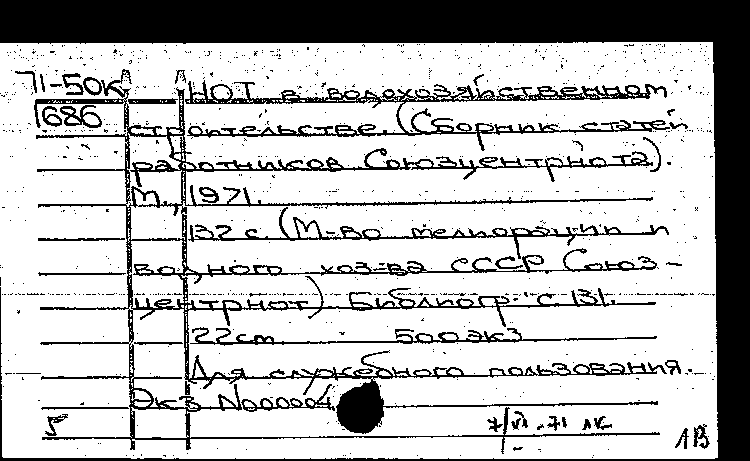 71-50К НОТ в водохозяйственном
1686
строительстве. (Сборник статей
работников Союзцентрнота).
М., 1971.
132 с. (М-во мелиорации и
водного хоз-ва СССР. Союз-
центрнот) Библиогр.: с. 131.
22см. 500экз
Для служебного пользования.
Экз №00004
5 7/VI-71 1В